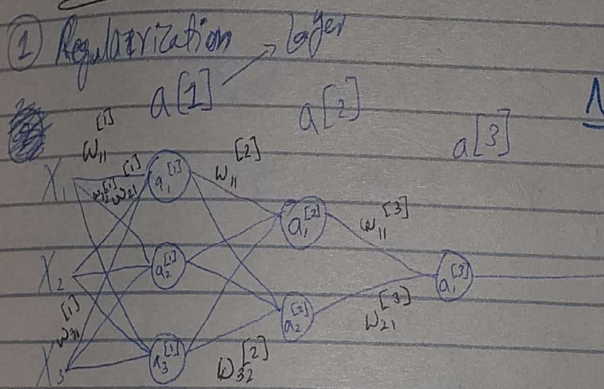 ① Regularization → layer
a[1] a[2] a[3]
ω₁₁^[1] ω₁₁^[2]
X₁ ω₂₁^[1] a₁^[1]
a₁^[2] ω₁₁^[3]
X₂ a₂^[1] a₁^[3]
a₂^[2] ω₂₁^[3]
X₃ a₃^[1] ω₃₂^[2]